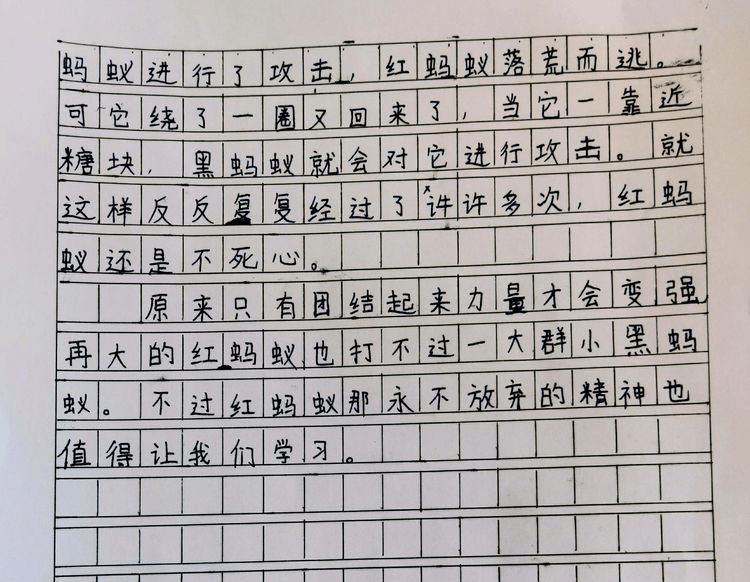 蚂蚁进行了攻击，红蚂蚁落荒而逃。
可它绕了一圈又回来了，当它一靠近
糖块，黑蚂蚁就会对它进行攻击。就
这样反反复复经过了许许多次，红蚂
蚁还是不死心。
原来只有团结起来力量才会变强
再大的红蚂蚁也打不过一大群小黑蚂
蚁。不过红蚂蚁那永不放弃的精神也
值得让我们学习。